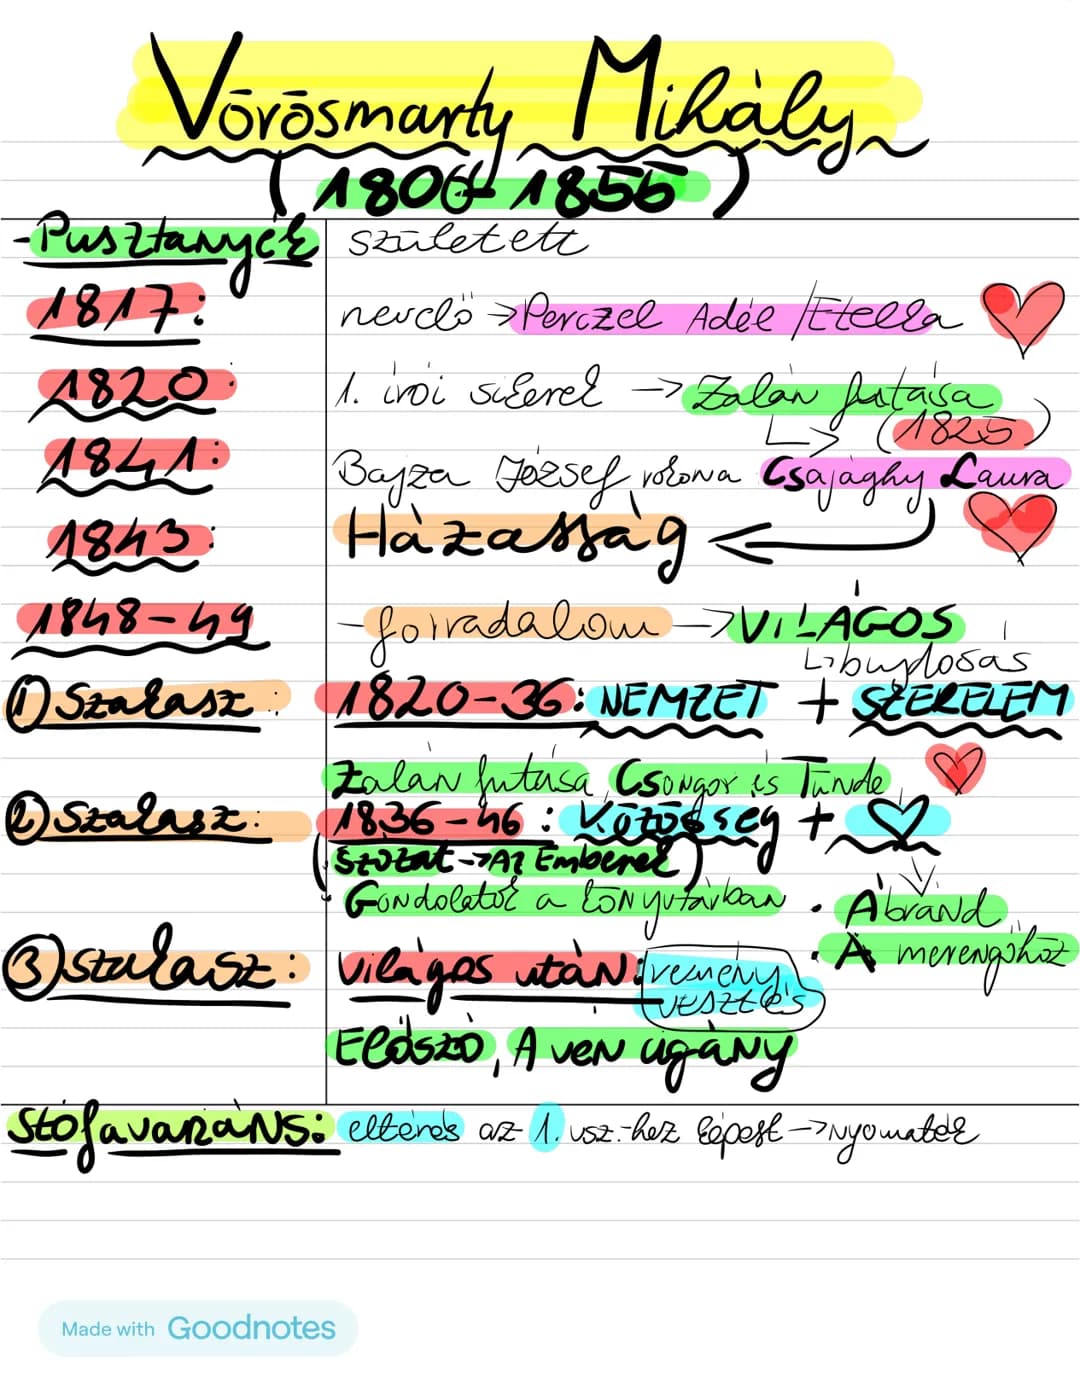 Vörösmarty Mihály
(1800-1855)
-Pusztanyék született
1817: nevelő →Perczel Adél/Etelka
1820: 1. írói sikerek → Zalán futása
↳ (1825)
1841: Bajza József rokona Csajághy Laura
1843: Házasság ←
1848-49 - forradalom →VILÁGOS
↳bujdosás
1) Szakasz: 1820-36: NEMZET + SZERELEM
Zalán futása, Csongor és Tünde
2) Szakasz: 1836-46: Közösség + ♡
(Szózat→Az Emberek)
Gondolatok a könyvtárban
• Ábránd
• A merengőhöz
3) szakasz: világos után: remény
vesztés
Előszó, A vén cigány
Stófavariáns: eltérés az 1. vsz.-hez képest →nyomaték
Made with Goodnotes